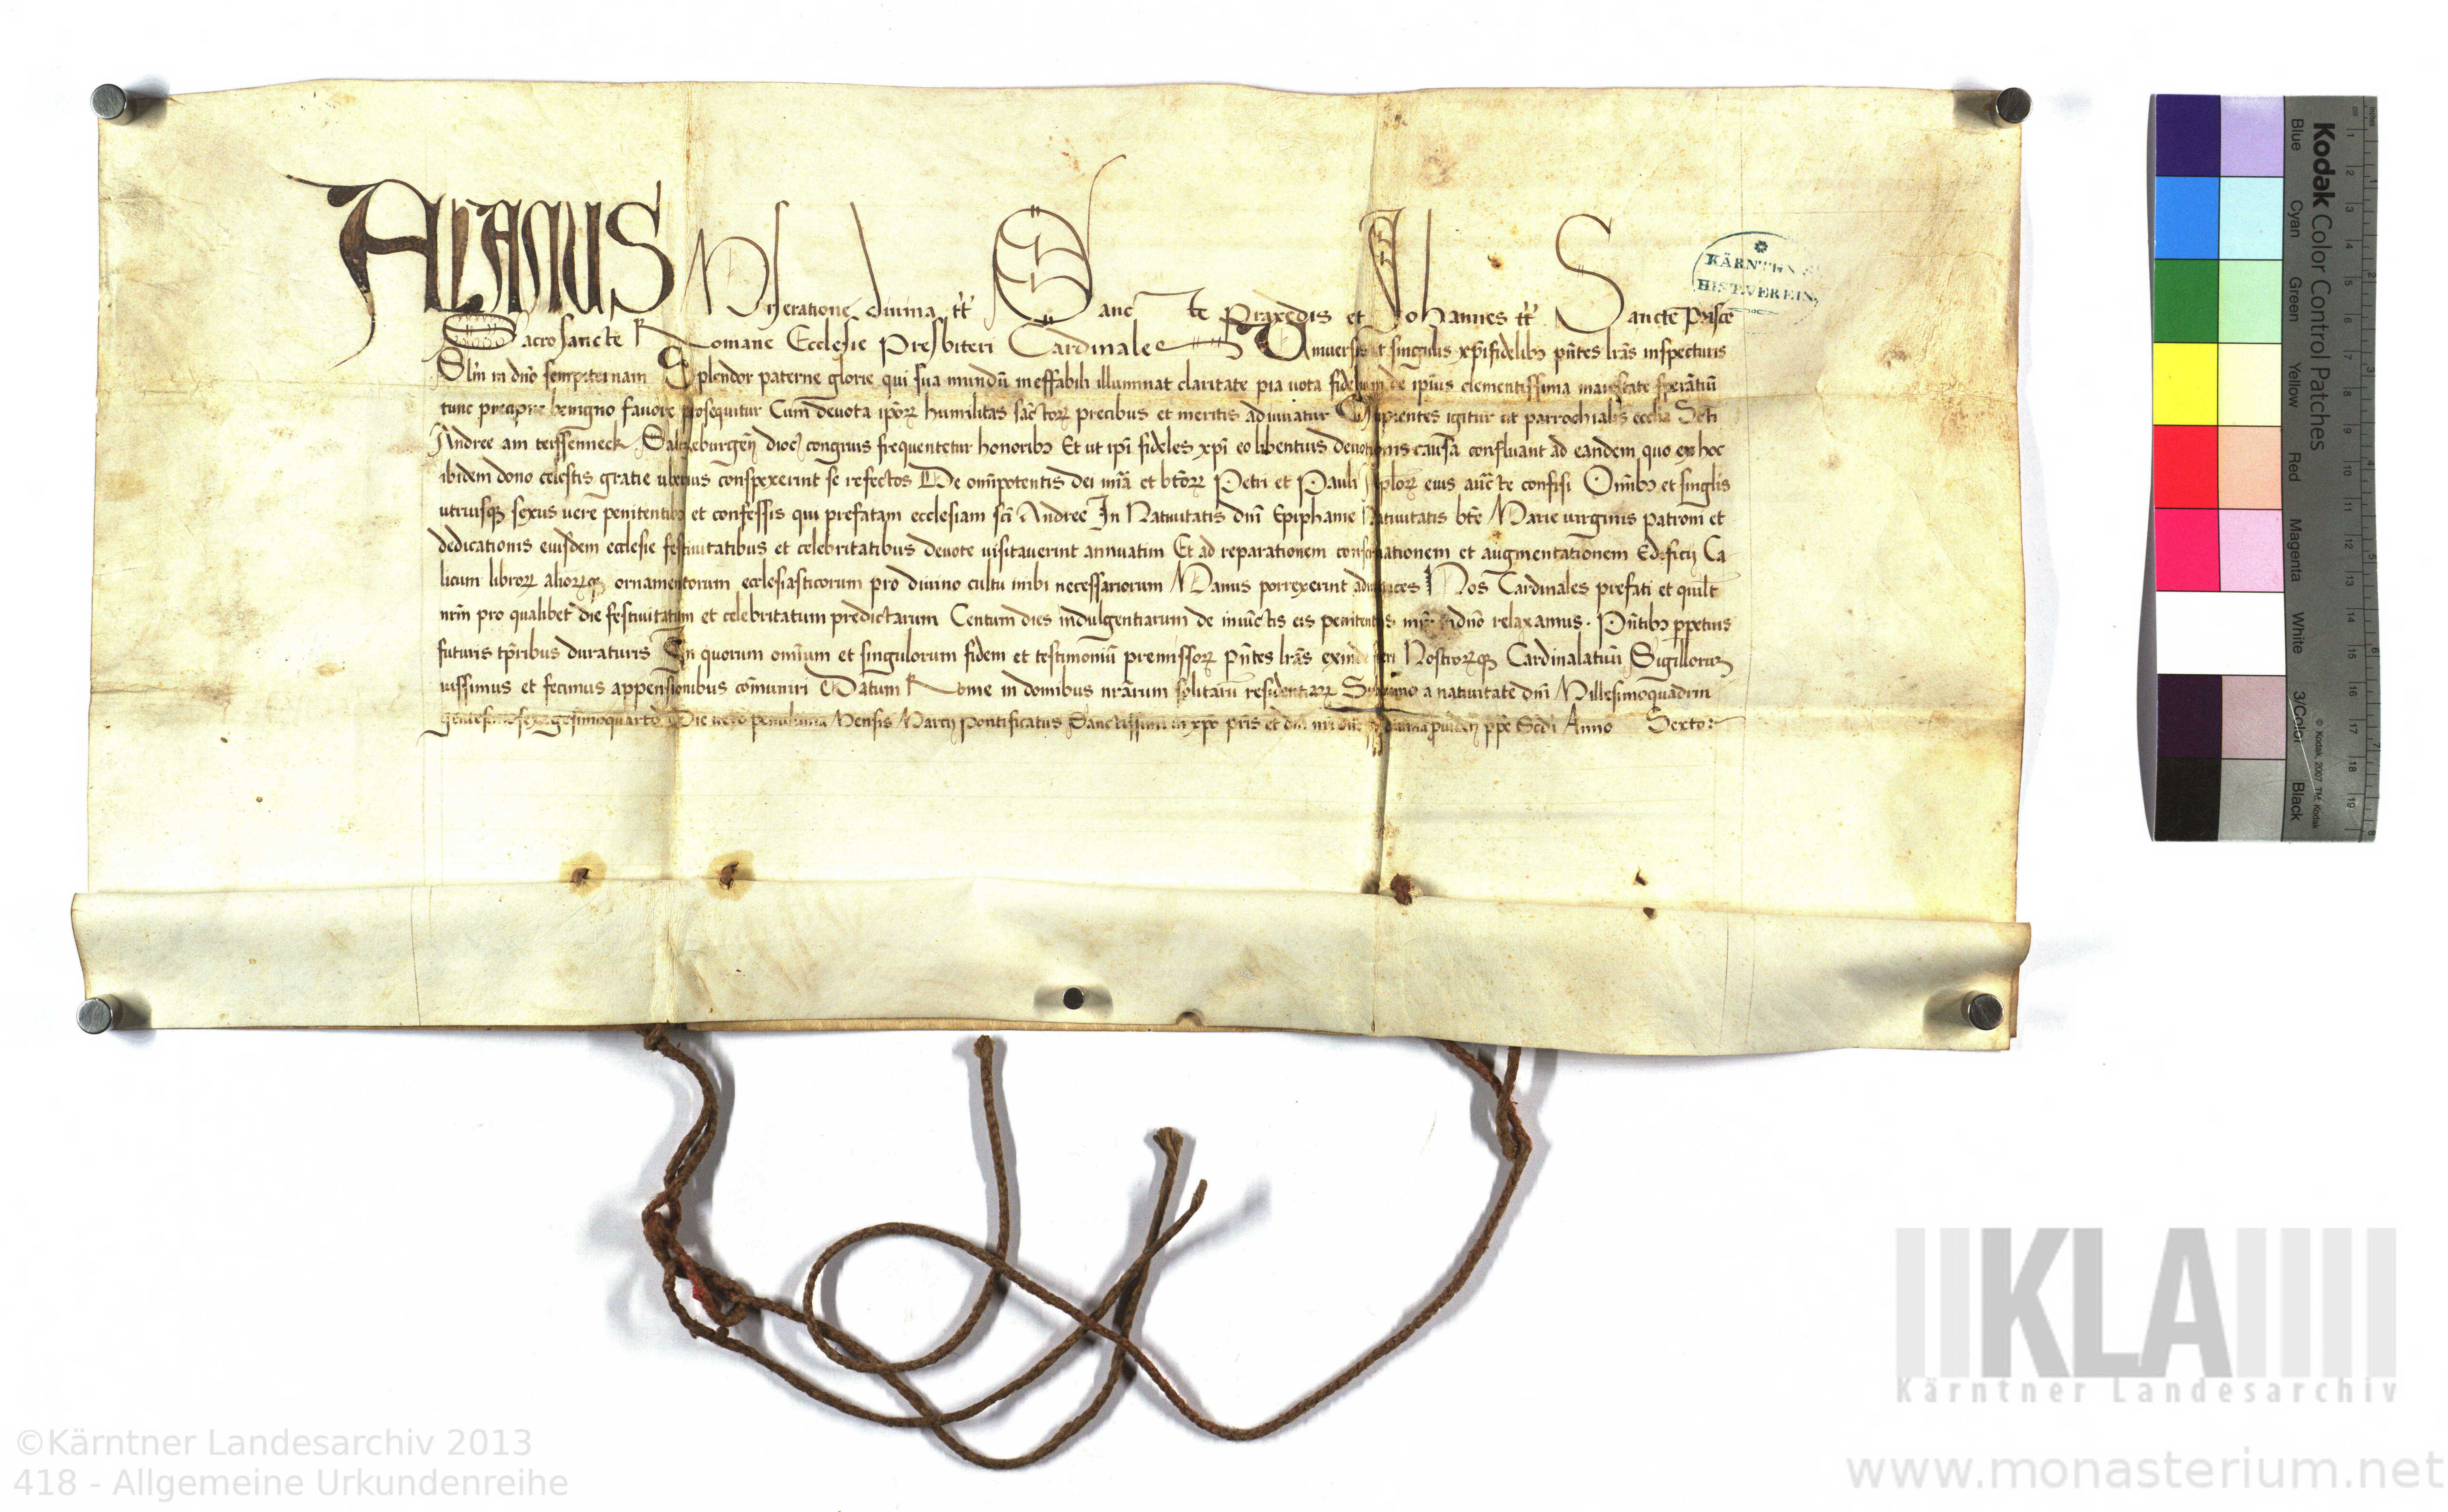 ALANUS Miseratione divina tt̄ Sancte Praxedis et Johannes tt̄ Sancte Prisce
Sacrosancte Romane Ecclesie Presbiteri Cardinales Universis et singulis xp̄ifidelib3 pn̄tes lr̄as inspecturis
Sl̄m in dn̄o sempiternam Splendor paterne glorie qui sua mundū ineffabili illuminat claritate pia vota fidelium de ip̄ius clementissima maiestate sperātiū
tunc precipue benigno favore prosequitur Cum devota ip̄oꝝ humilitas sāctoꝝ precibus et meritis adiuvatur Cupientes igitur ut parrochialis ecclia Scti
Andree am terssenneck Saltzeburgen̄ dioc̄ congruis frequentetur honorib3 Et ut ip̄i fideles xp̄i eo libentius devotionis causa confluant ad eandem quo ex hoc
ibidem dono celestis gratie uberius conspexerint se refectos De omīpotentis dei mīa et btōꝝ Petri et Pauli Aploꝝ eius auc̄te confisi Omīb3 et singlis
utriusqꝫ sexus vere penitentib3 et confessis qui prefatam ecclesiam sci Andree In Nativitatis dn̄i Epiphanie Nativitatis bt̄e Marie virginis patroni et
dedicationis eiusdem ecclesie festivitatibus et celebritatibus devote visitaverint annuatim Et ad reparationem conservationem et augmentationem Edificij Ca
licum libroꝝ alioꝝqꝫ ornamentorum ecclesiasticorum pro divino cultu inibi necessariorum Manus porrexerint adiutrices Nos Cardinales prefati et quilt
nr̄m pro qualibet die festivitatum et celebritatum predictarum Centum dies indulgentiarum de iniūctis eis penitentijs mīr̄ īdn̄o relaxamus. Pn̄tib3 ꝑpetuis
futuris tp̄ribus duraturis In quorum omīum et singulorum fidem et testimoniū premissoꝝ pn̄tes lr̄as exinde fieri Nostroꝝqꝫ Cardinalatuū Sigilloruꝫ
iussimus et fecimus appensionibus cōmuniri Datum Rome in domibus nr̄arum solitarū residentiaꝝ Sub anno a nativitate dn̄i Millesimoquadrin
gentesimosexagesimoquarto Die vero penultima Mensis Marcij Pontificatus Sanctissimi in xp̄o pr̄is et dn̄i nr̄i dn̄i Pij divina puidēn ꝑpe Scdi Anno Sexto:
KÄRNTN
HIST.VEREIN
Kodak Color Control Patches
Blue Cyan Green Yellow Red Magenta White 3/Color Black
© Kodak, 2007 TM: Kodak
KLA
Kärntner Landesarchiv
©Kärntner Landesarchiv 2013
418 - Allgemeine Urkundenreihe
www.monasterium.net